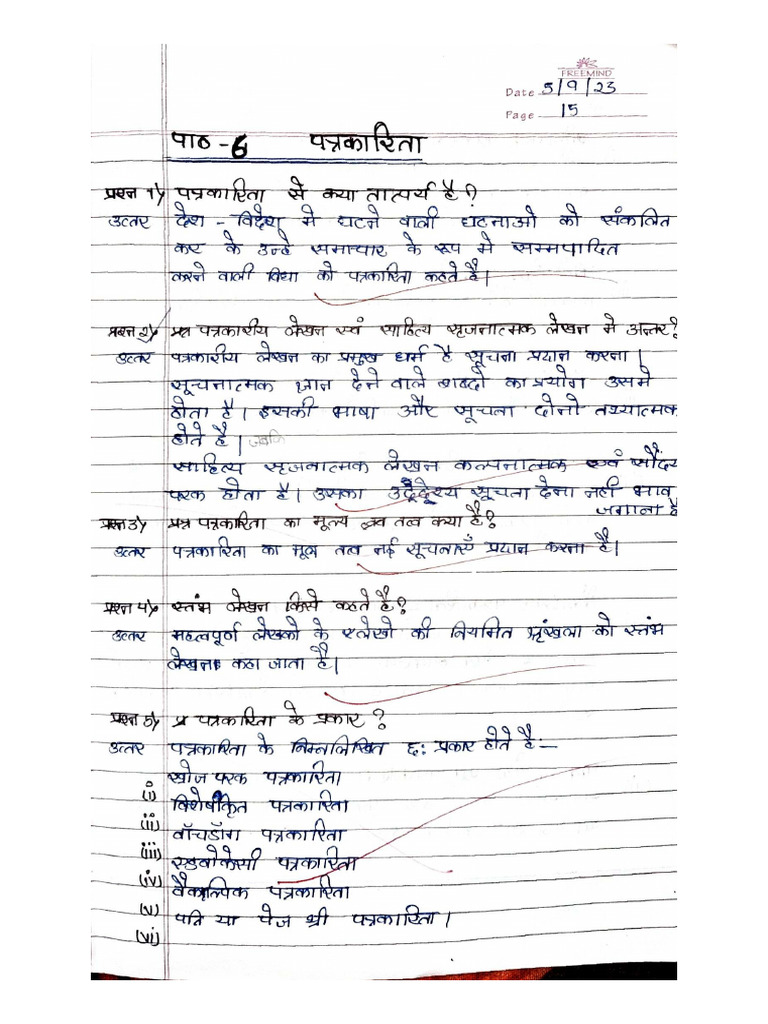 FREEMIND
Date 5/9/23
Page 15
पाठ - 6 पत्रकारिता
प्रश्न 1) पत्रकारिता से क्या तात्पर्य है?
उत्तर देश - विदेश मे घटने वाली घटनाओ को संकलित
कर के उन्हे समाचार के रूप मे सम्मपादित
करने वाली विधा को पत्रकारिता कहते है।
प्रश्न 2) पत्रकारीय लेखन एवं साहित्य सृजनात्मक लेखन मे अन्तर?
उत्तर पत्रकारीय लेखन का प्रमुख धर्म है सूचना प्रयान करना।
सूचनात्मक ज्ञान देने वाले शब्दो का प्रयोग उसमे
होता है। इसकी भाषा और सूचता दोनो तथ्यात्मक
होते है। जबकि
साहित्य सृजनात्मक लेखन कल्पनात्मक एवं सौंदर
परक होता है। उसका उद्देश्य सूचता देना नही भाव
जगाना है
प्रश्न 3) पत्रकारिता का मूल्य तत्व क्या है?
उत्तर पत्रकारिता का मूल तत्व नई सूचनाएँ प्रयान करना है।
प्रश्न 4) स्तंभ लेखन किसे कहते है?
उत्तर महत्वपूर्ण लेखको के लेखो की नियमित श्रृंखला को स्तंभ
लेखन कहा जाता है।
प्रश्न 5) प्र पत्रकारिता के प्रकार?
उत्तर पत्रकारिता के निम्नलिखित छ: प्रकार होते है:—
खोज परक पत्रकारिता
(i) विशेषीकृत पत्रकारिता
(ii) वॉचडॉग पत्रकारिता
(iii) एडवोकेसी पत्रकारिता
(iv) वैकल्पिक पत्रकारिता
(v) पत्रि या पेज श्री पत्रकारिता।
(vi)